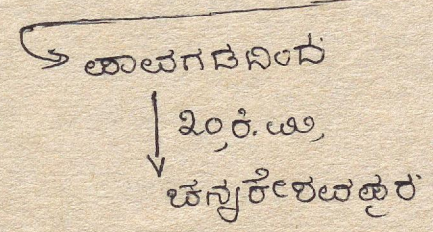 ಪಾವಗಡದಿಂದ
೩೦, ಕಿ. ಮಿ,
ಚನ್ನಕೇಶವಪುರ